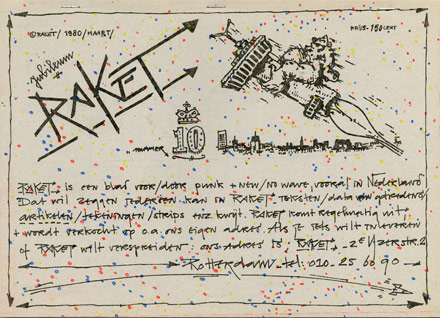 © RAKET / 1980 / MAART /
PRIJS - 150 CENT
Jubileum
RAKET
NUMMER 10
RAKET is een blad voor/door punk + new/no wave, vooral in Nederland
Dat wil zeggen iedereen kan in RAKET teksten/data van optredens/
artikelen/tekeningen/strips enz. kwijt. RAKET komt regelmatig uit,
+ wordt verkocht op o.a. ons eigen adres. Als je iets wilt inleveren
of RAKET wilt verspreiden: ons adres is, RAKET, 2e IJzerstr. 2
Rotterdam, tel: 010 - 25 60 90